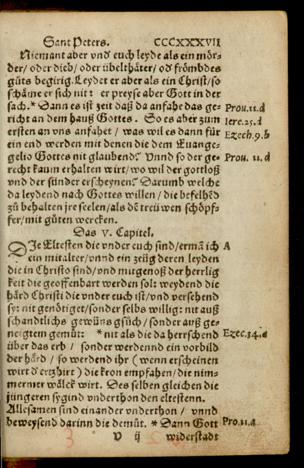 Sant Peters. CCCXXXVII
Niemant aber vnd euch leyde als ein mör-
der/ oder dieb/ oder übelthäter/ od frömbdes
gůts begirig. Leydet er aber als ein Christ/ so
schäme er sich nit: er preyse aber Gott in der
sach.* Dann es ist zeit daß da anfahe das ge- Prou.11.d
richt an dem hauß Gottes. So es aber zum Iere.25.d
ersten an vns anfahet/ was wil es dann für Ezech.9.b
ein end werden mit denen die dem Euange-
gelio Gottes nit glaubend? Vnnd so der ge- Prou.11.d
recht kaum erhalten wirt/ wo wil der gottloß
vnd der sünder erscheynen? Darumb welche
da leydend nach Gottes willen/ die befelhēd
zů behalten jre seelen/ als dē treüwen schöpf-
fer/ mit gůten wercken.
Das v. Capitel.
DIe Eltesten die vnder euch sind/ ermā ich A
ein mitalter/ vnnd ein zeüg deren leyden
die in Christo sind/ vnd mitgnoß der herrlig
keit die geoffenbart werden sol: weydend die
härd Christi die vnder euch ist/ vnd versehend
sy: nit genötiget/ sonder selbs willig: nit auß
schandtlichs gewüns gsůch/ sonder auß ge-
neigtem gemüt: *nit als die da herrschend Ezec.34.a
über das erb/ sonder werdennd ein vorbild
der härd/ so werdend ihr (wenn erscheinen
wirt d' ertzhirt) die kron empfahen/ die nim-
mermer wälck wirt. Des selben gleichen die
jüngeren sygind vnderthon den eltestenn.
Allesamen sind einander vnderthon/ vnnd
beweysend darinn die demůt. * Dann Gott Pro.11.d
V ij widerstadt